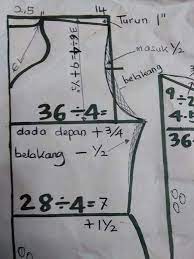 2,5
14
Turun 1"
36÷4=9+½
masuk ½
belakang
36÷4=
dada depan + ¾
belakang - ½
28÷4=7
+1½
3
9
4.5
36